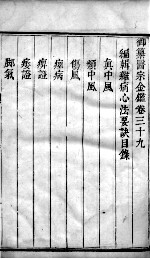 御纂醫宗金鑑卷三十九
編輯雜病心法要訣目錄
眞中風
類中風
傷風
痙病
痹證
痿證
脚氣